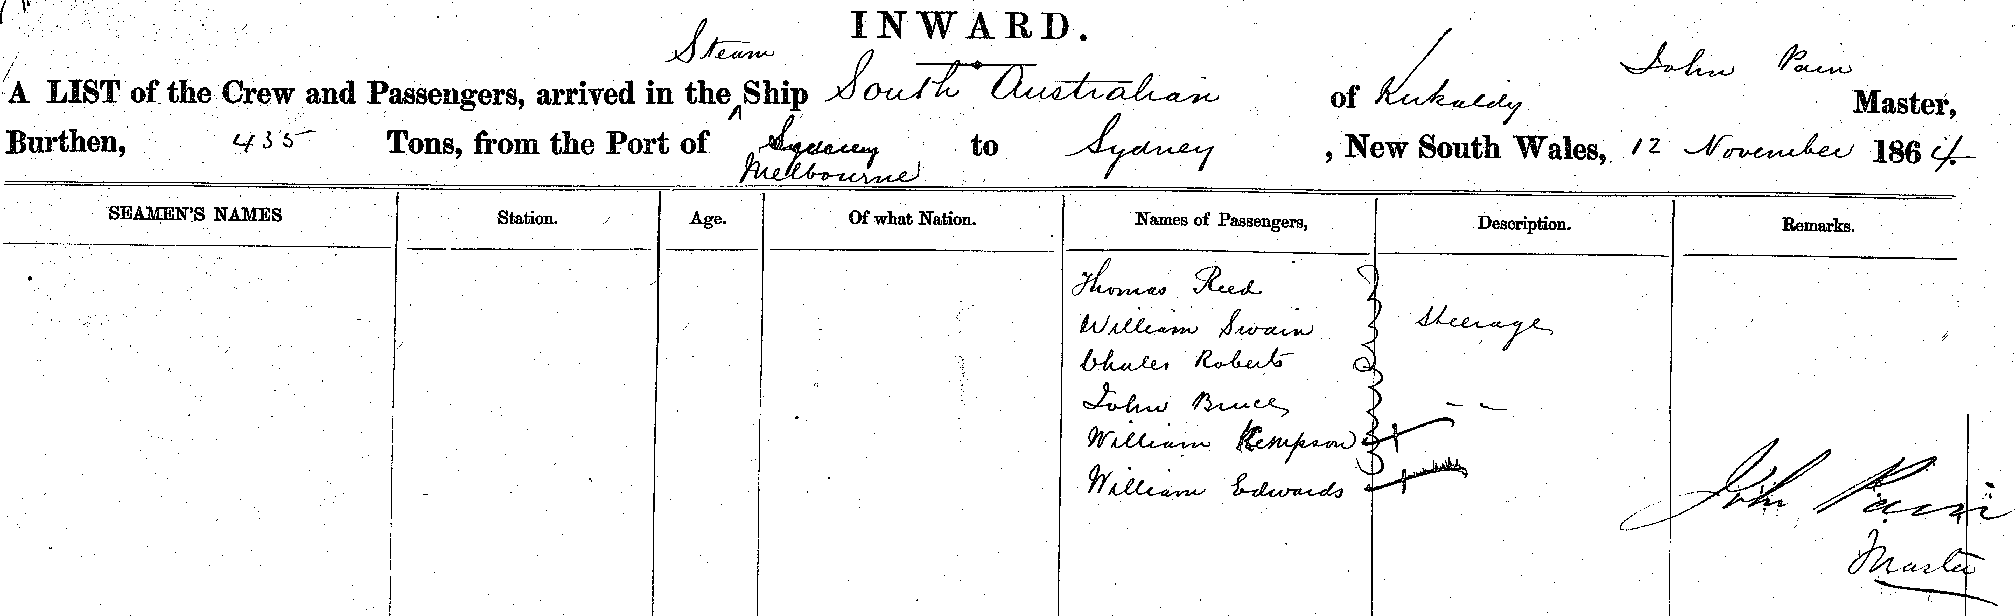 INWARD.
Steam
John Pain
A LIST of the Crew and Passengers, arrived in the ^ Ship South Australian of Kirkaldy Master,
Burthen, 435 Tons, from the Port of Sydney to Sydney, New South Wales, 12 November 1864.
Melbourne
SEAMEN'S NAMES Station. Age. Of what Nation. Names of Passengers, Description. Remarks.
Thomas Reed
William Swain Steerage
Charles Roberts
John Bruce - -
William Kempson
William Edwards
John Pain
Master